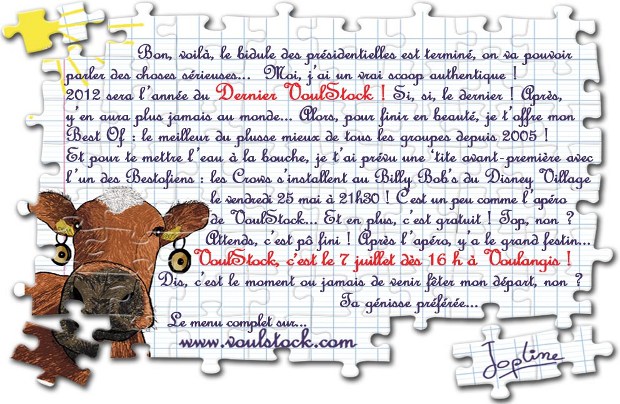 Bon, voilà, le bidule des présidentielles est terminé, on va pouvoir
parler des choses sérieuses... Moi, j'ai un vrai scoop authentique !
2012 sera l'année du Dernier VoulStock ! Si, si, le dernier ! Après,
y'en aura plus jamais au monde... Alors, pour finir en beauté, je t'offre mon
Best Of : le meilleur du plusse mieux de tous les groupes depuis 2005 !
Et pour te mettre l'eau à la bouche, je t'ai prévu une 'tite avant-première avec
l'un des Bestofiens : les Crows s'installent au Billy Bob's du Disney Village
le vendredi 25 mai à 21h30 ! C'est un peu comme l'apéro
de VoulStock... Et en plus, c'est gratuit ! Top, non ?
Attends, c'est pô fini ! Après l'apéro, y'a le grand festin...
VoulStock, c'est le 7 juillet dès 16 h à Voulangis !
Dis, c'est le moment ou jamais de venir fêter mon départ, non ?
Ta génisse préférée...
Le menu complet sur...
www.voulstock.com
Jopline